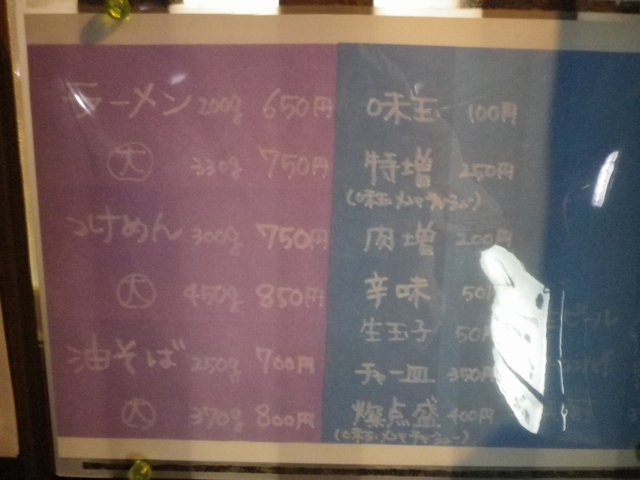 ラーメン 200g 650円
大 330g 750円
つけめん 300g 750円
大 450g 850円
油そば 250g 700円
大 370g 800円
味玉 100円
特増 250円
(味玉 メンマ チャーシュー)
肉増 200円
辛味 50円
生玉子 50円
チャー皿 350円
燦点盛 400円
(味玉 メンマ チャーシュー)
ビール